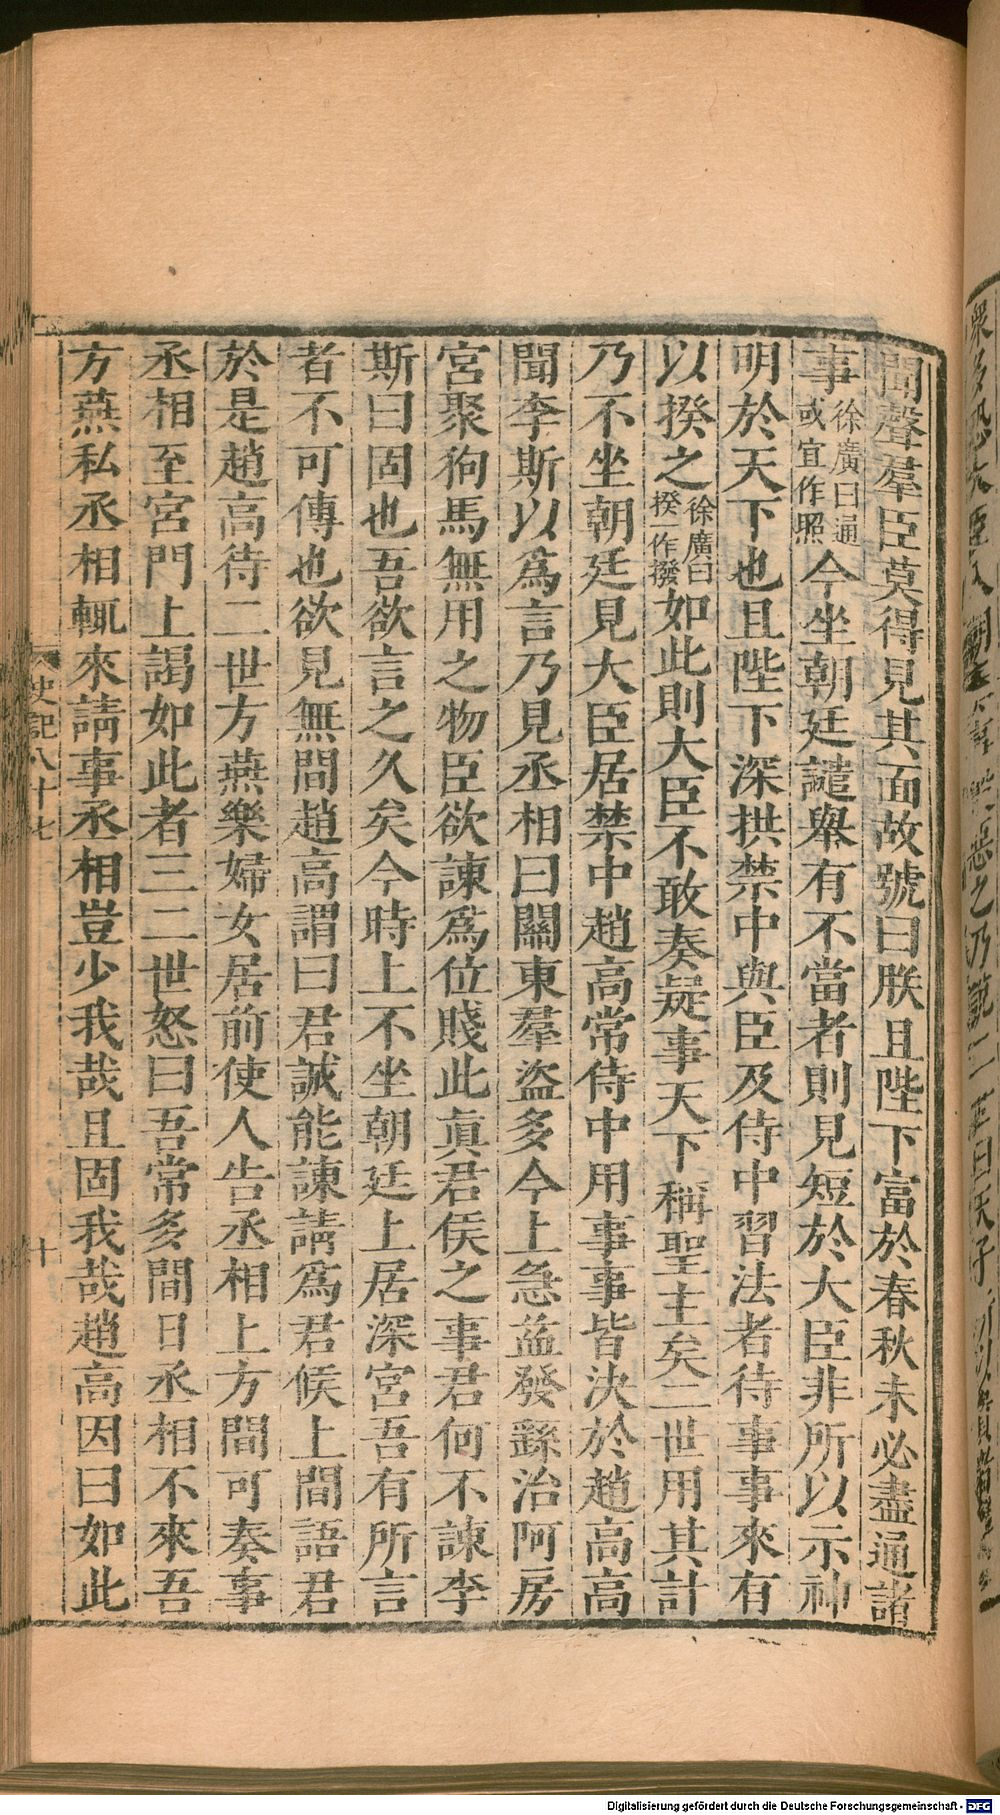 聞聲羣臣莫得見其面故號曰朕且陛下富於春秋未必盡通諸
事徐廣曰通或宜作照今坐朝廷譴舉有不當者則見短於大臣非所以示神
明於天下也且陛下深拱禁中與臣及侍中習法者待事事來有
以揆之徐廣曰揆一作撥如此則大臣不敢奏疑事天下稱聖主矣二世用其計
乃不坐朝廷見大臣居禁中趙高常侍中用事事皆決於趙高高
聞李斯以爲言乃見丞相曰關東羣盜多今上急益發繇治阿房
宮聚狗馬無用之物臣欲諫爲位賤此眞君侯之事君何不諫李
斯曰固也吾欲言之久矣今時上不坐朝廷上居深宮吾有所言
者不可傳也欲見無間趙高謂曰君誠能諫請爲君候上間語君
於是趙高待二世方燕樂婦女居前使人告丞相上方間可奏事
丞相至宮門上謁如此者三二世怒曰吾常多間日丞相不來吾
方燕私丞相輒來請事丞相豈少我哉且固我哉趙高因曰如此
史記八十七
十
Digitalisierung gefördert durch die Deutsche Forschungsgemeinschaft - DFG